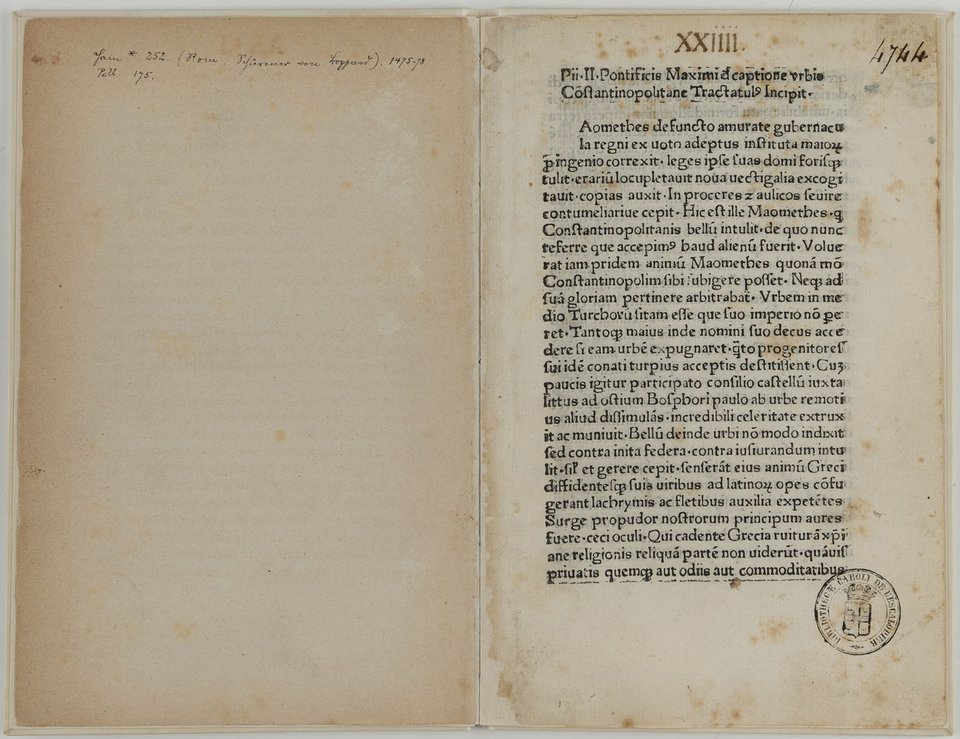 Hain * 252. (Rom, Schurener von Boppard). 1475-78
Pell. 175.
XXIIII.
4744
Pii·II·Pontificis Maximi đ captione vrbis
Cōstantinopolitane Tractatulꝰ Incipit·
Aomethes defuncto amurate gubernacu
la regni ex uoto adeptus instituta maioꝝ
ꝓ ingenio correxit· leges ipse suas domi forisqꝫ
tulit·erariū locupletauit noua uectigalia excogi
tauit·copias auxit·In proceres ⁊ aulicos seuire
contumeliariue cepit·Hic est ille Maomethes·q
Constantinopolitanis bellū intulit·de quo nunc
referre que accepimꝰ haud alienū fuerit·Volue
rat iam pridem animū Maomethes quonā mō
Constantinopolim sibi subigere posset·Neqꝫ ad
suā gloriam pertinere arbitrabat᷑·Vrbem in me
dio Turchorū sitam esse que suo imperio nō ꝑe
ret·Tantoqꝫ maius inde nomini suo decus acce
dere si eam urbē expugnaret·q̄to progenitores
sui idē conati turpius acceptis destitissent·Cuꝫ
paucis igitur participato consilio castellū iuxta
littus ad ostium Bosphori paulo ab urbe remoti
us aliud dissimulās·incredibili celeritate extrux
it ac muniuit·Bellū deinde urbi nō modo indixit
sed contra inita federa·contra iusiurandum intu
lit·sil̕ et gerere cepit·senserāt eius animū Greci
diffidentesqꝫ suis uiribus ad latinoꝝ opes cōfu
gerant lachrymis ac fletibus auxilia expetētes
Surge propudor nostrorum principum aures
fuere·ceci oculi·Qui cadente Grecia ruiturā xp̄i
ane religionis reliquā partē non uiderūt·quāuis
priuatis quemqꝫ aut odiis aut commoditatibus
BIBLIOTHECÆ CAROLI DE L'ESCALOPIER